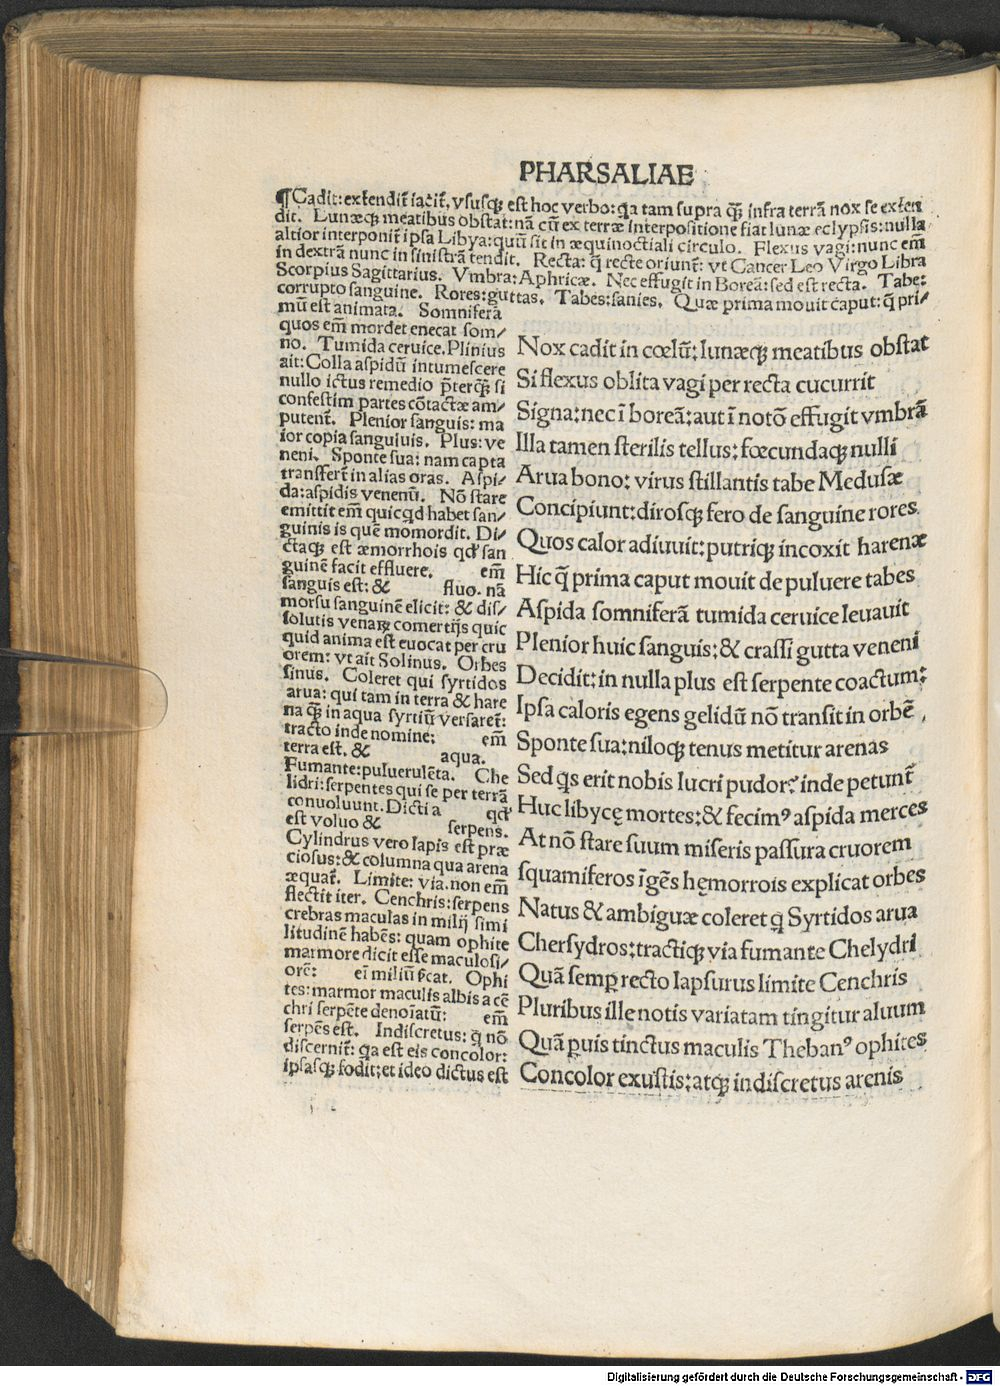 PHARSALIAE
¶Cadit:extendit̃ iacit̃, vsusq̢ est hoc verbo:q̱a tam supra q̄ꝫ infra terrā nox se exten
dit. Lunæq̢ meatibus obstat:nā cū ex terræ interpositione fiat lunæ eclypsis:nulla
altior interponit̃ ipsa Libya:quū sit in æquinoctiali circulo. Flexus vagi:nunc em̄
in dextrā nunc in sinistrā tendit. Recta: q̄ recte oriunt̃: vt Cancer Leo Virgo Libra
Scorpius Sagittarius. Vmbra: Aphricæ. Nec effugit in Boreā: sed est recta. Tabe:
corrupto sanguine. Rores:guttas. Tabes:sanies. Quæ prima mouit caput: q̄ pri/
mū est animata. Somniferā
quos em̄ mordet enecat som/
no. Tumida ceruice. Plinius
ait: Colla aspidū intumescere
nullo ictus remedio p̄terq̄ꝫ si
confestim partes cōtactæ am/
putent̃. Plenior sanguis: ma
ior copia sanguiuis. Plus: ve
neni. Sponte sua: nam capta
transfert̃ in alias oras. Aspi/
da:aspidis venenū. Nō stare
emittit em̄ quicq̱d habet san/
guinis is quē momordit. Di/
ctaq̢ est æmorrhois qd' san
guinē facit effluere. em̄
sanguis est: & fluo. nā
morsu sanguinē elicit: & dis/
solutis venaꝝ comertijs quic
quid anima est euocat per cru
orem: vt ait Solinus. Orbes
sinus. Coleret qui syrtidos
arua: qui tam in terra & hare
na q̄ꝫ in aqua syrtiū versaret̃:
tracto inde nomine: em̄
terra est. & aqua.
Fumante:puluerulēta. Che
lidri: serpentes qui se per terrā
conuoluunt. Dicti a qd'
est voluo & serpens.
Cylindrus vero lapis est præ
ciosus: & columna qua arena
æquat̃. Limite: via. non em̄
flectit iter. Cenchris: serpens
crebras maculas in milij simi
litudinē habēs: quam ophite
marmore dicit esse maculosi/
orē: ei milium p̄cat. Ophi
tes: marmor maculis albis a cē
chri serpēte denoīatū: em̄
serpēs est. Indiscretus: q̄ nō
discernit̃: q̱a est eis concolor:
ipsasq̢ fodit; et ideo dictus est
Nox cadit in cœlū: lunæq̢ meatibus obstat
Si flexus oblita vagi per recta cucurrit
Signa: nec ī boreā: aut ī notō effugit vmbrā
Illa tamen sterilis tellus: fœcundaq̢ nulli
Arua bono: virus stillantis tabe Medusæ
Concipiunt: dirosq̢ fero de sanguine rores
Quos calor adiuuit: putriq̢ incoxit harenæ
Hic q̄ prima caput mouit de puluere tabes
Aspida somniferā tumida ceruice leuauit
Plenior huic sanguis: & crassi gutta veneni
Decidit: in nulla plus est serpente coactum:
Ipsa caloris egens gelidū nō transit in orbē,
Sponte sua: niloq̢ tenus metitur arenas
Sed q̱s erit nobis lucri pudor? inde petunt̃
Huc libycę mortes: & fecimꝰ aspida merces
At nō stare suum miseris passura cruorem
squamiferos īgēs hęmorrois explicat orbes
Natus & ambiguæ coleret q̱ Syrtidos arua
Chersydros: tractiq̢ via fumante Chelydri
Quā semꝑ recto lapsurus limite Cenchris
Pluribus ille notis variatam tingitur aluum
Quā ꝑuis tinctus maculis Thebanꝰ ophites
Concolor exustis: atq̢ indiscretus arenis
Digitalisierung gefördert durch die Deutsche Forschungsgemeinschaft - DFG